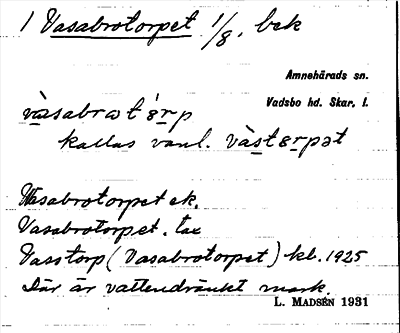 1 Vasabrotorpet 1/8, bek
Amnehärads sn.
Vadsbo hd. Skar. l.
vàsabrɷt érp
kallas vanl. vàstərpət
Wasabrotorpet ek.
Vasabrotorpet. tax
Vasstorp (Vasabrotorpet) kb. 1925
Där är vattendränkt mark.
L. MADSÉN 1931